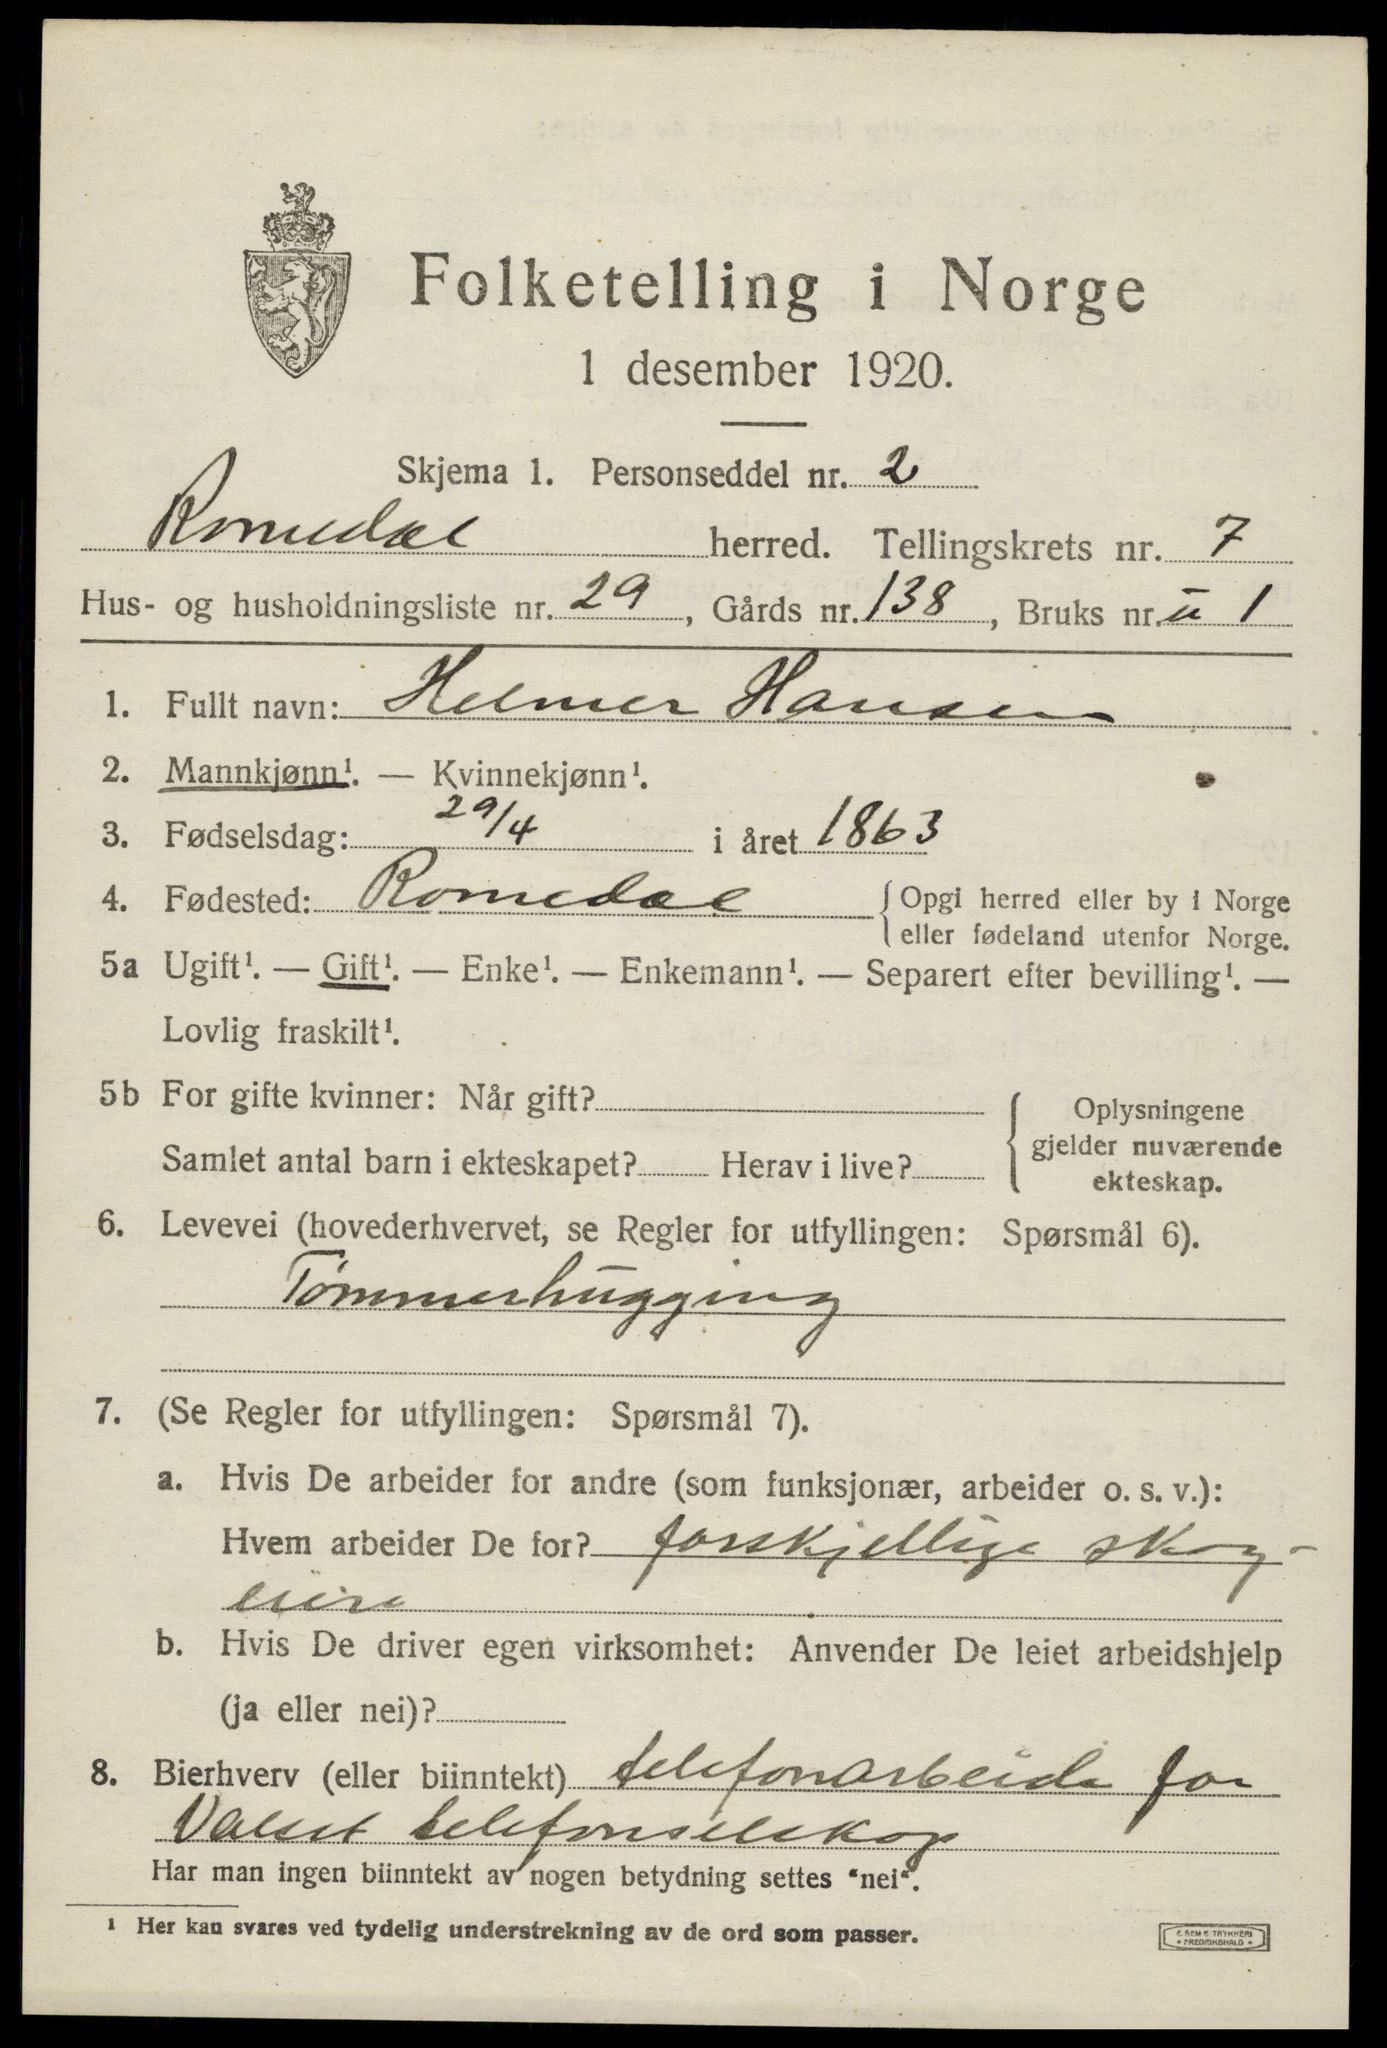 Folketelling i Norge
1 desember 1920.
Skjema 1. Personseddel nr. 2
Romedal herred. Tellingskrets nr. 7
Hus- og husholdningsliste nr. 29, Gårds nr. 138, Bruks nr. u 1
1. Fullt navn: Helmer Hansen
2. Mannkjønn¹. — Kvinnekjønn¹.
3. Fødselsdag: 29/4 i året 1863
4. Fødested: Romedal { Opgi herred eller by i Norge
eller fødeland utenfor Norge.
5a Ugift¹. — Gift¹. — Enke¹. — Enkemann¹. — Separert efter bevilling¹. —
Lovlig fraskilt¹.
5b For gifte kvinner: Når gift?
Samlet antal barn i ekteskapet? Herav i live?
{ Oplysningene
gjelder nuværende
ekteskap.
6. Levevei (hovederhvervet, se Regler for utfyllingen: Spørsmål 6).
Tømmerhugging
7. (Se Regler for utfyllingen: Spørsmål 7).
a. Hvis De arbeider for andre (som funksjonær, arbeider o. s. v.):
Hvem arbeider De for? forskjellige skog-
eiere
b. Hvis De driver egen virksomhet: Anvender De leiet arbeidshjelp
(ja eller nei)?
8. Bierhverv (eller biinntekt) telefonarbeide for
Valset telefonselskap
Har man ingen biinntekt av nogen betydning settes “nei“.
¹ Her kan svares ved tydelig understrekning av de ord som passer.
E. SEM'S TRYKKERI
• FREDRIKSHALD •